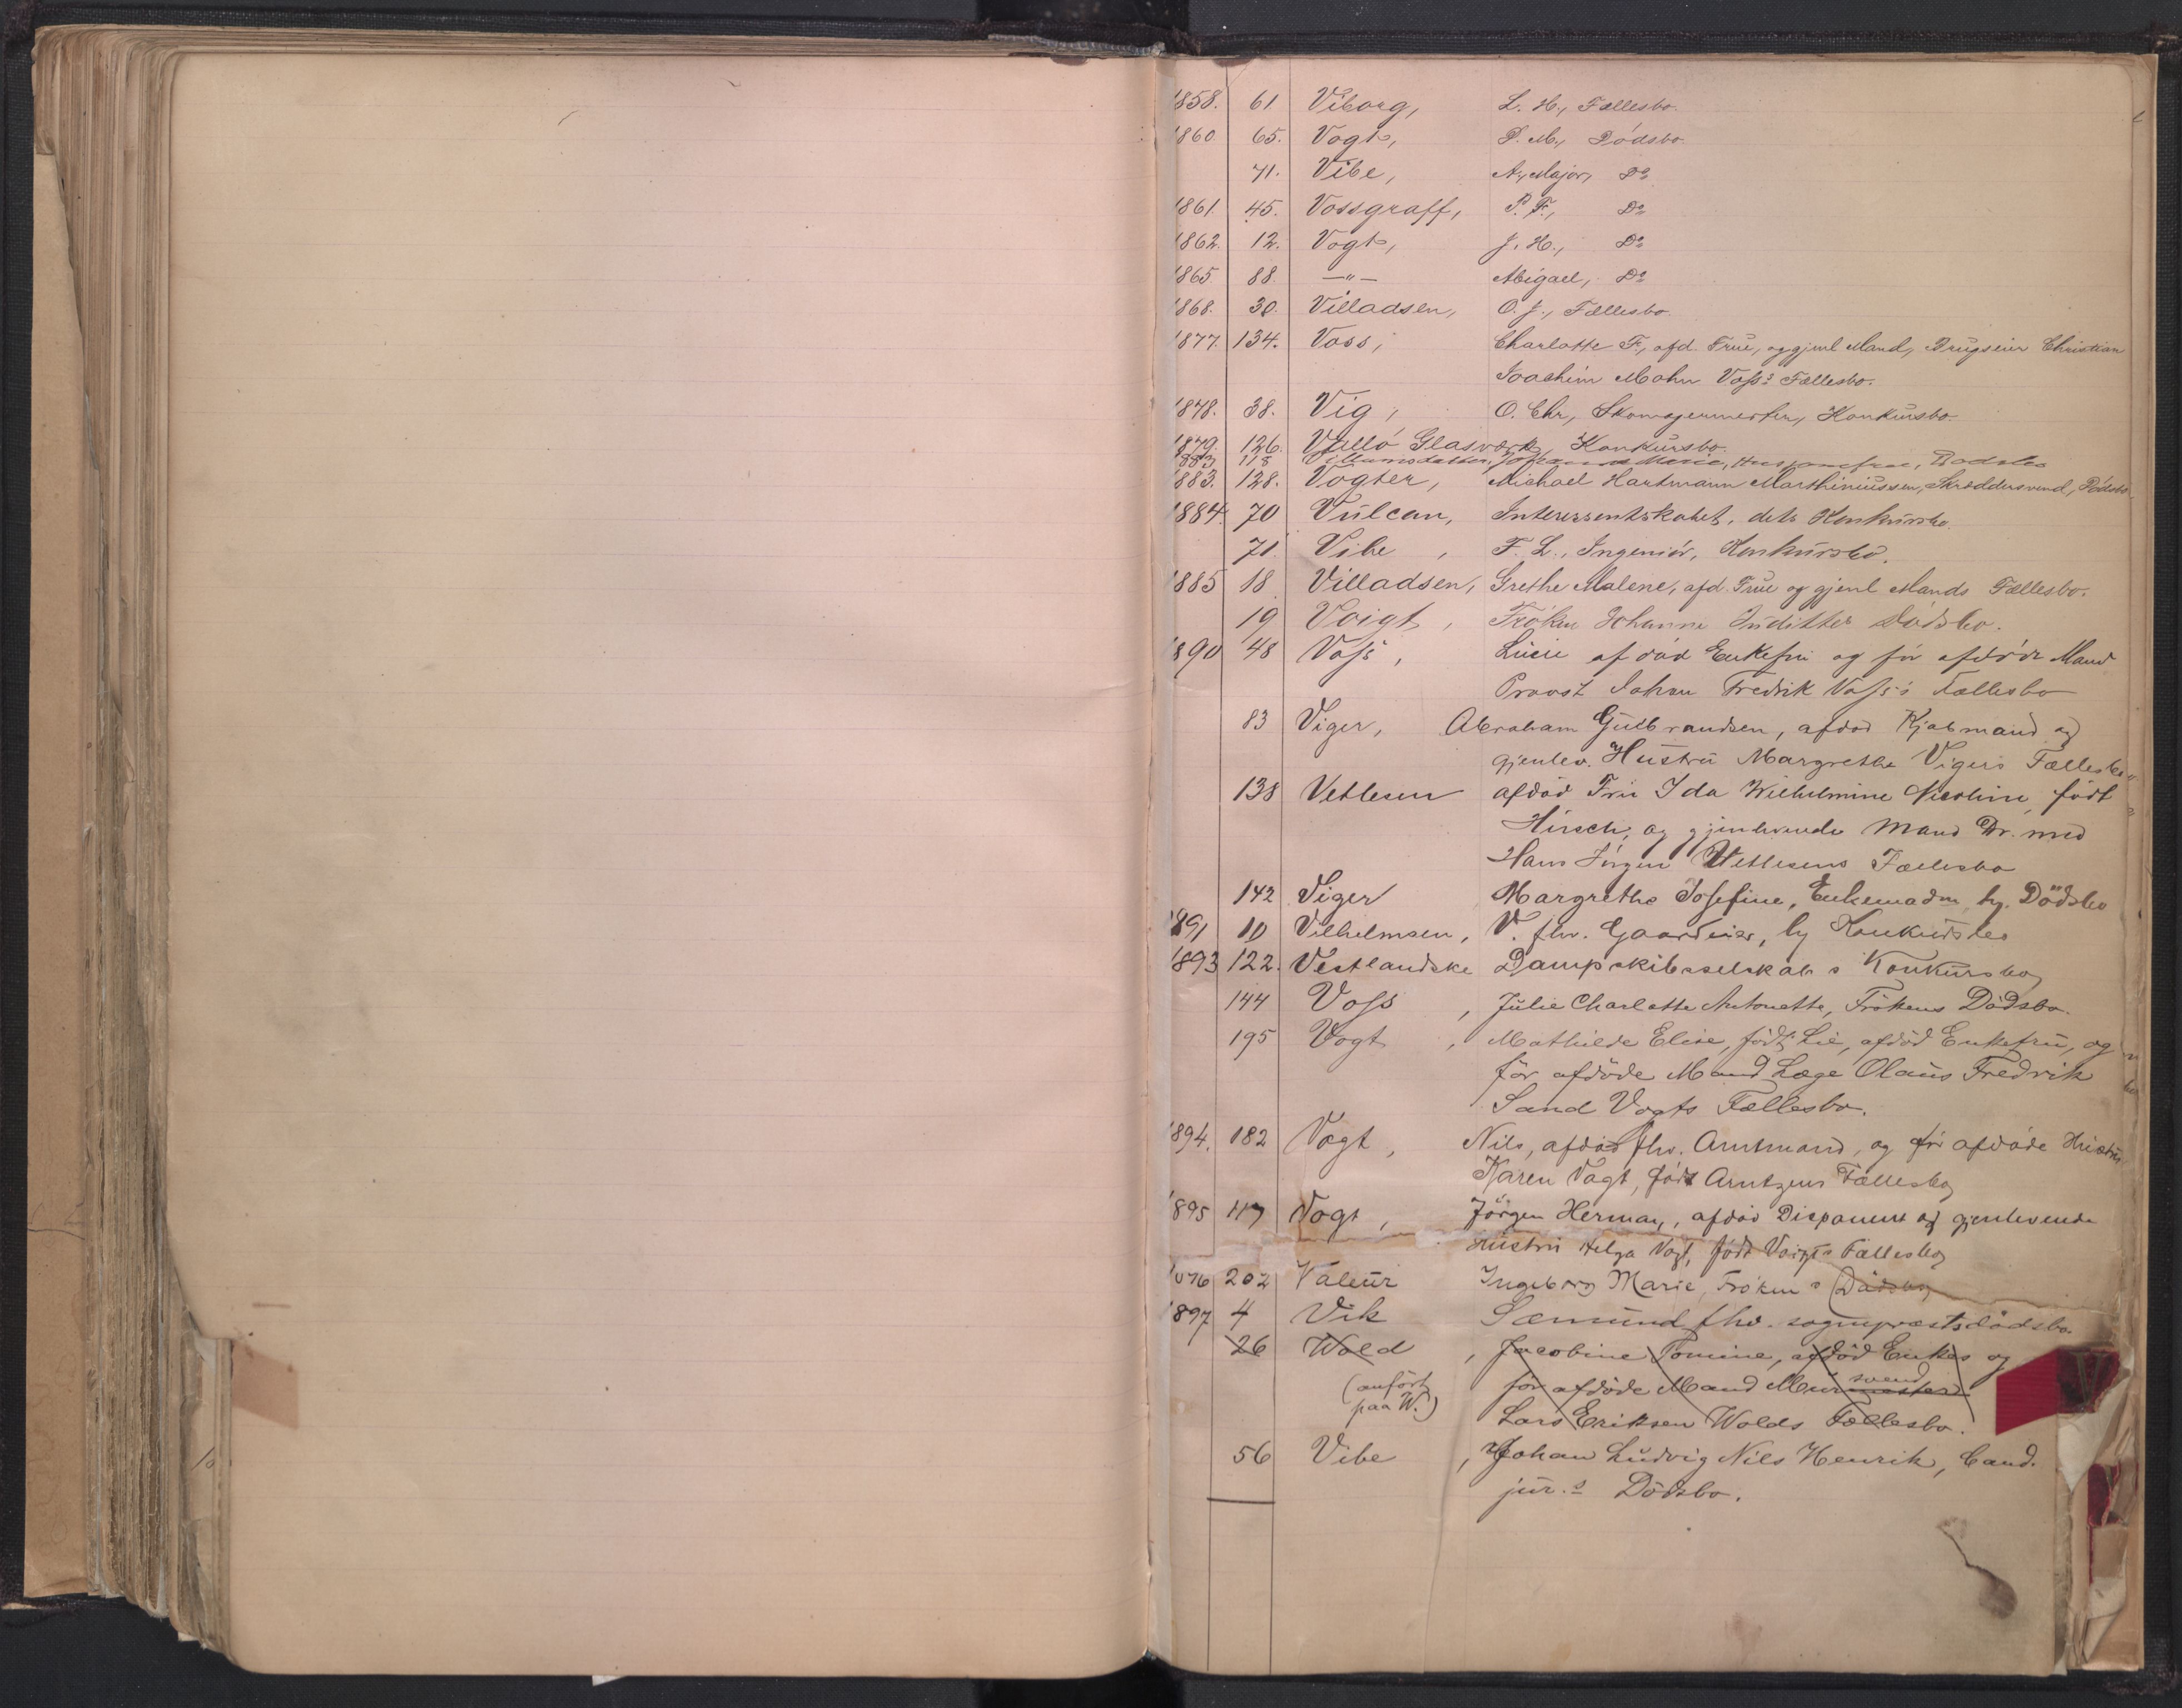 1858. 61 Viborg, L. H., Fællesbo.
1860 65. Vogt, P. M., Dödsbo.
71. Vibe, A., Major, Do
1861. 45. Vossgraff, P. F., Do
1862. 12. Vogt, J. H., Do
1865 88. —"— Abigael, Do
1868. 30. Villadsen, O. J., Fællesbo.
1877. 134. Voss, Charlotte F., afd. Frue, og gjenl Mand, Brugseier Christian
Joachim Mohn Voss's Fællesbo.
1878. 38. Vig, O. Chr, Skomagermester, Konkursbo.
1879. 126. Vallö Glasværk, Konkursbo.
1883 118 Villumsdatter, Johanne Marie, Dødsbo
1883. 128. Vogter, Michael Hartmann Marthiniussen, Skræddersvend, Dödsbo.
1884. 70 Vulcan, Interessentskabet, dets Konkursbo.
71. Vibe, F. L., Ingeniör, Konkursbo.
1885 18 Villadsen, Grethe Malene, afd. Frue og gjenl Mands Fællesbo.
19 Voigt, Fröken Johanne Judithes Dødsbo.
1890 48 Voss, Lucie afdöd Enkefru og för afdöde Mand
Provst Johan Fredrik Voss's Fællesbo
83 Viger, Abraham Gulbrandsen, afdöd Kjøbmand og
gjenlev. Hustru Margrethe Vigers Fællesbo
138 Vetlesen afdöd Fru Ida Wilhelmine Nicoline, född
Hirsch, og gjenlevende Mand Dr. med
Hans Jörgen Vetlesens Fællesbo
142 Viger Margrethe Josefine, Enkemadm, hg. Dödsbo
1891 10 Vilhelmsen, V. fhv. Gaardeier, hg Konkursbo
1893 122. Vestlandske Dampskibsselskabs Konkursbo
144 Voss, Julie Charlotte Antonette, Frökens Dödsbo.
195 Vogt, Mathilde Elise, født Lie, afdöd Enkefru, og
för afdöde Mand Læge Olaus Fredrik
Sand Vogts Fællesbo.
1894. 182 Vogt, Nils, afdöd fhv. Amtmand, og för afdöde Hustru
Karen Vogt, födt Arntzens Fællesbo
1895 117 Vogt, Jörgen Herman, afdöd Disponent og gjenlevende
Hustru Helga Vogt, födt Voigt's Fællesbo
1896 202 Valeur Ingeborg Marie, Fröken's Dödsbo
1897 4 Vik Sæmund fhv. sogneprests dødsbo.
26 Wold, Jacobine Tomine, afdöd Enkes og
(anført för afdöde Mand Murmester svend
paa W.) Lars Eriksen Wolds Fællesbo.
56 Vibe, Johan Ludvig Nils Henrik, Cand.
jur.s Dödsbo.
V